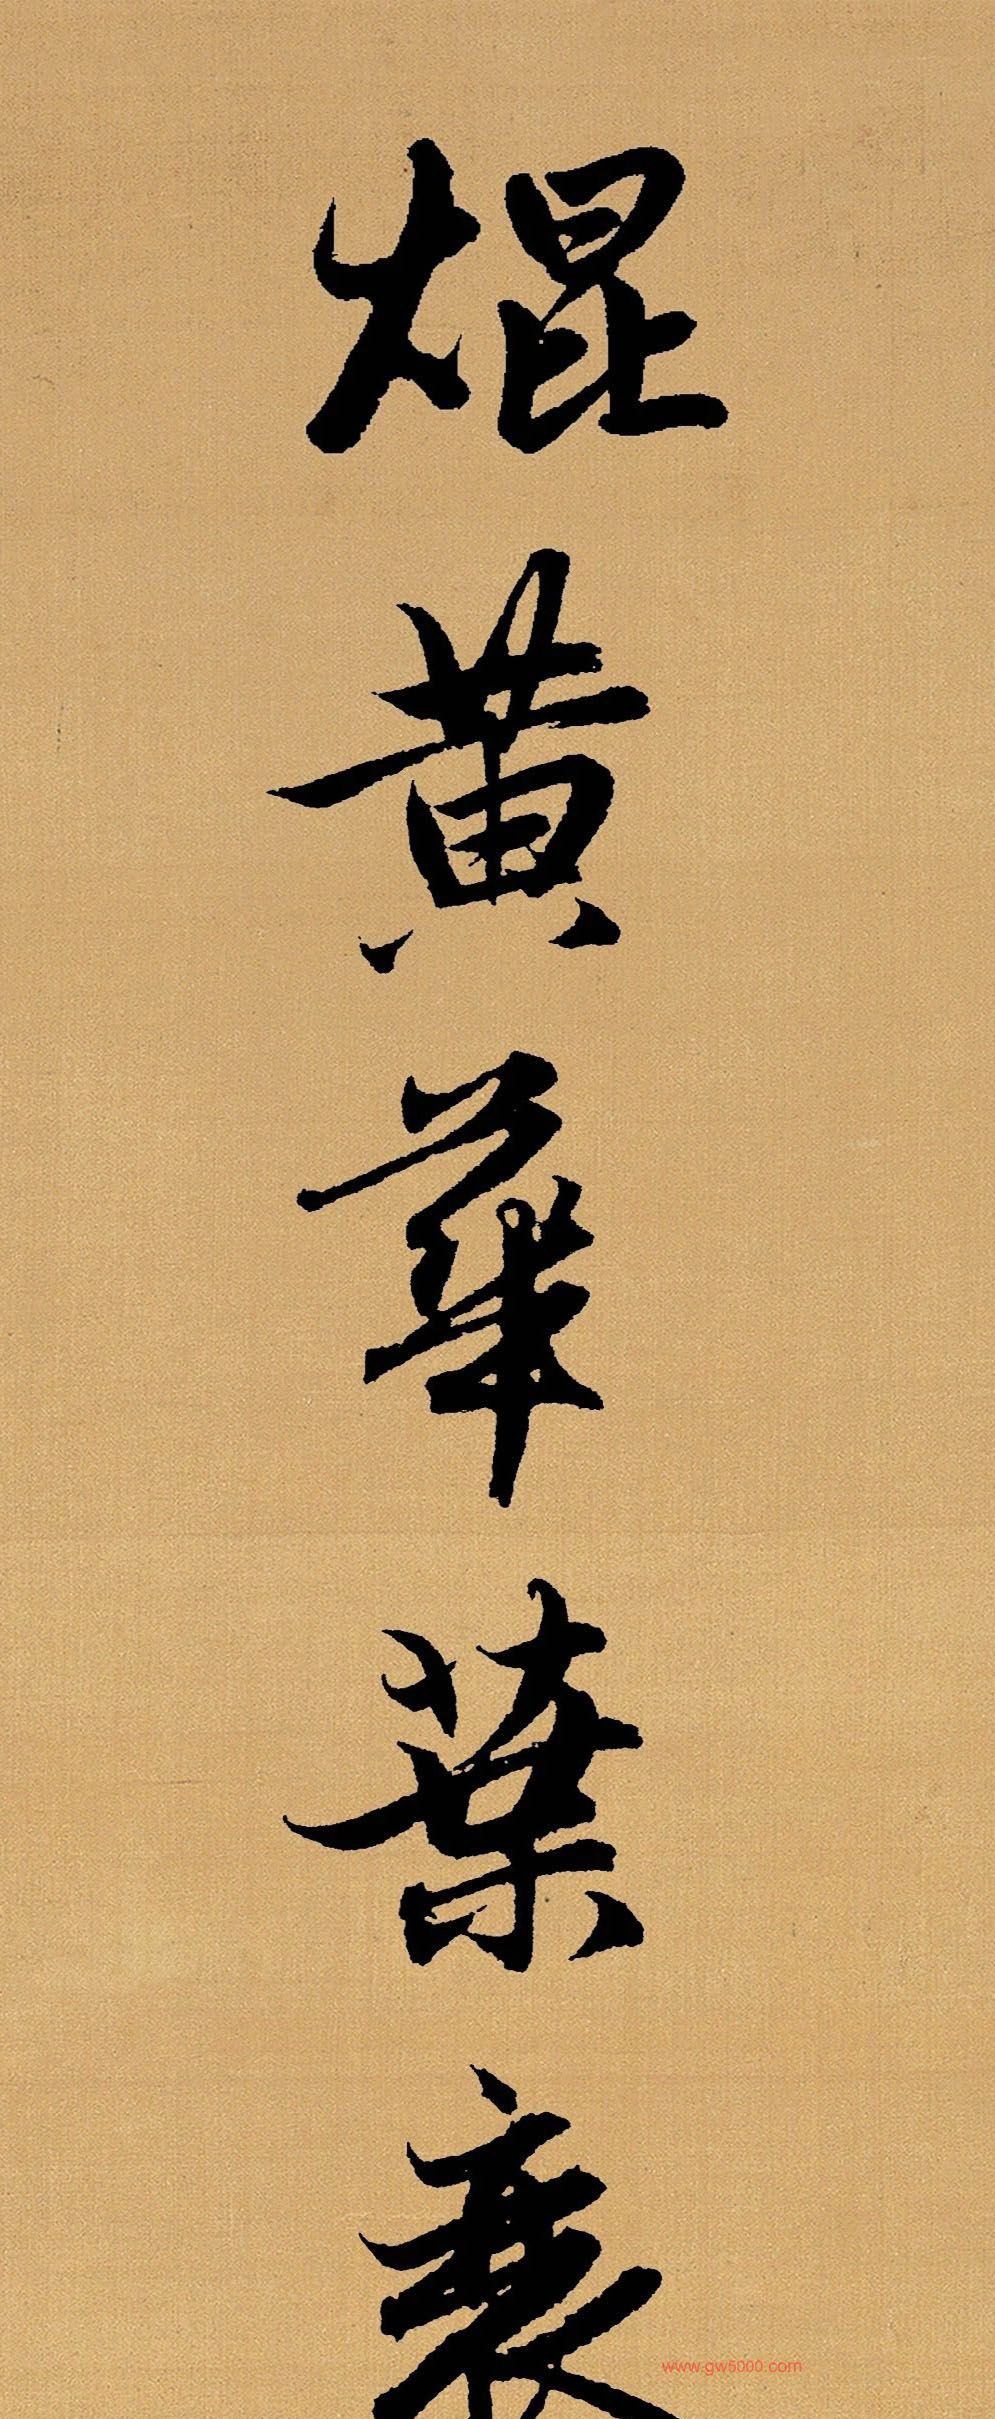 焜黄華葉衰
www.gw5000.com